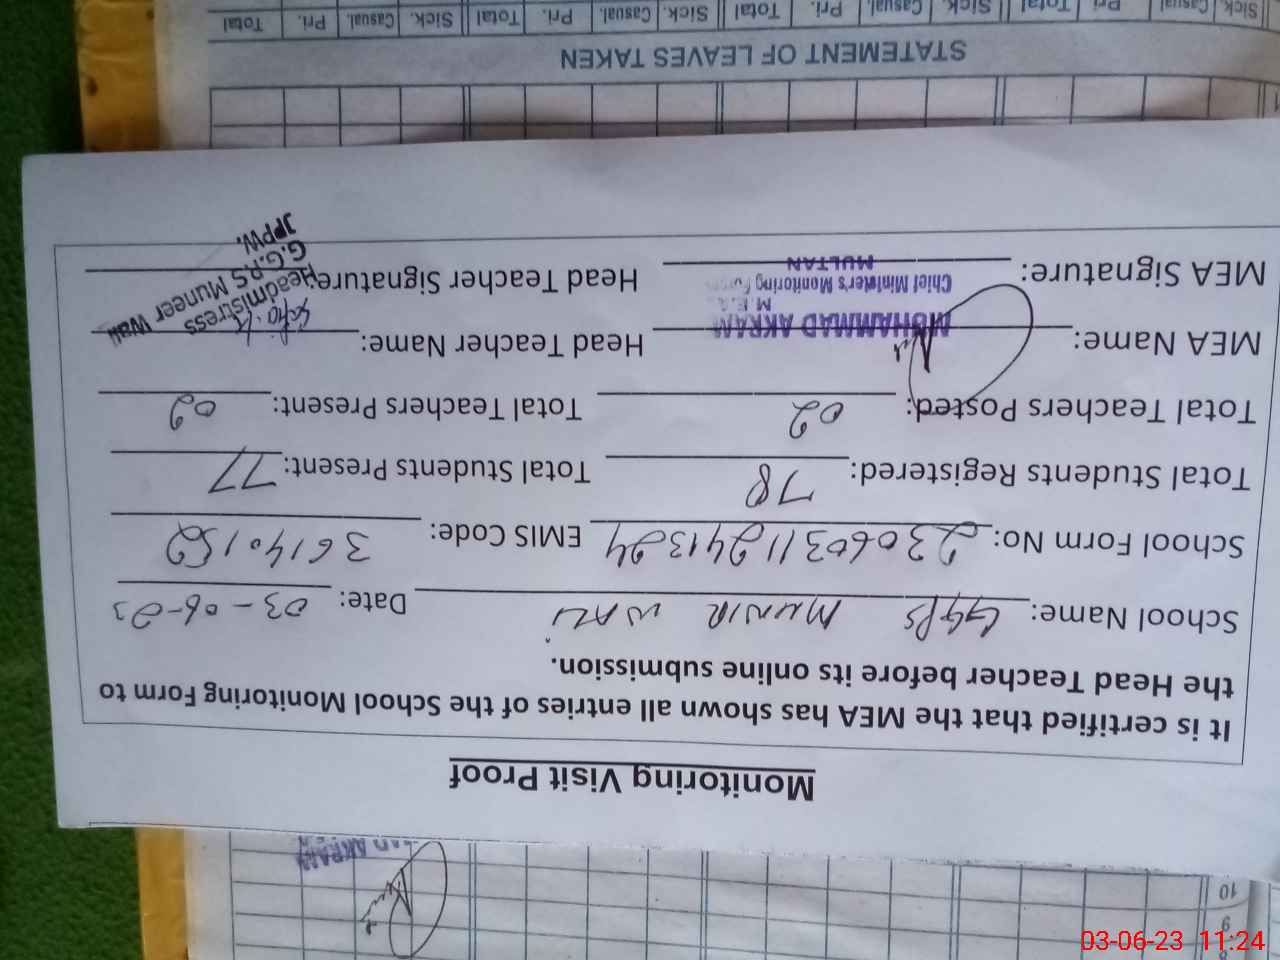 Monitoring Visit Proof
It is certified that the MEA has shown all entries of the School Monitoring Form to
the Head Teacher before its online submission.
School Name: GGPS MUNIR WALI Date: 03-06-23
School Form No: 2306031124 1324 EMIS Code: 36140152
Total Students Registered: 78 Total Students Present: 77
Total Teachers Posted: 02 Total Teachers Present: 02
MEA Name: MUHAMMAD AKRAM Head Teacher Name:
M.E.A
MEA Signature: Chief Minister's Monitoring Force Head Teacher Signature:
MULTAN
Headmistress
G.G.P.S Muneer Wali
JPPW.
STATEMENT OF LEAVES TAKEN
Sick. Casual. Pri. Total Sick. Casual. Pri. Total Sick. Casual. Pri. Total Sick. Casual. Pri. Total
AKRAM
8
9
10
03-06-23 11:24